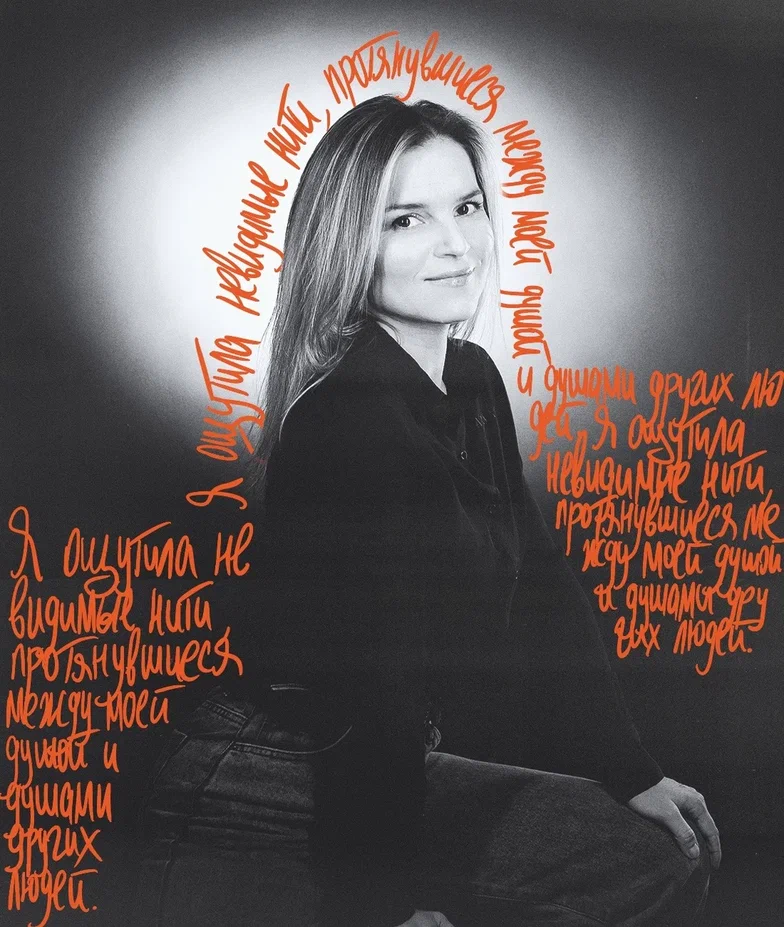 Я ощутила невидимые нити, протянувшиеся между моей душой
и душами других лю
дей. Я ощутила
невидимые нити,
протянувшиеся ме
жду моей душой
и душами дру
гих людей.
Я ощутила не
видимые нити
протянувшиеся
между моей
душой и
душами
других
людей.